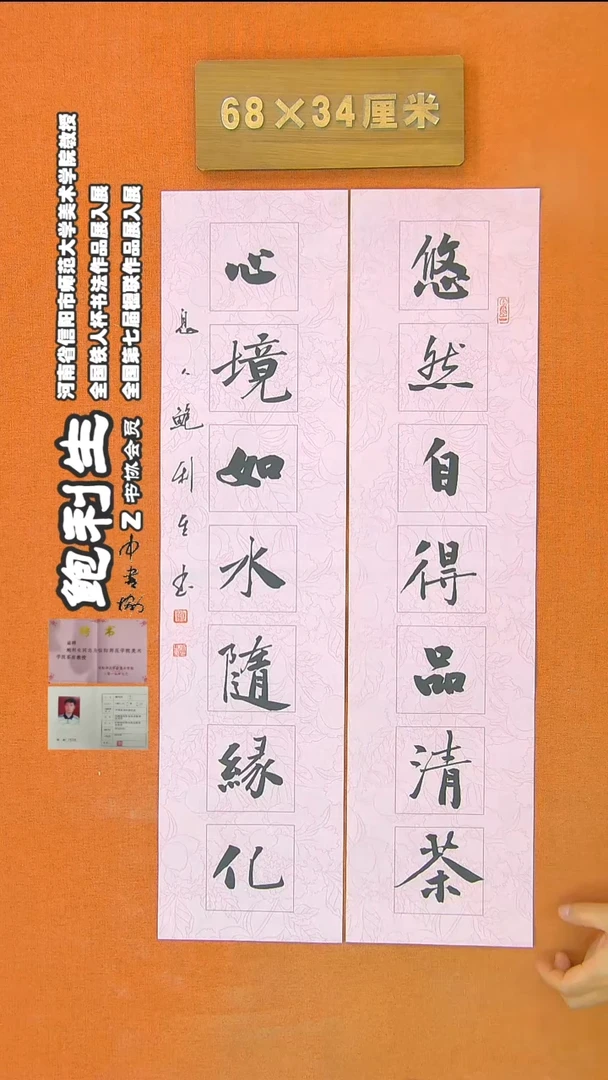 68×34厘米
悠然自得品清茶
心境如水隨緣化
鲍利生书
河南省信阳市师范大学美术学院教授
全国铁人杯书法作品展入展
全国第七届楹联作品展入展
鲍利生
Z书协会员